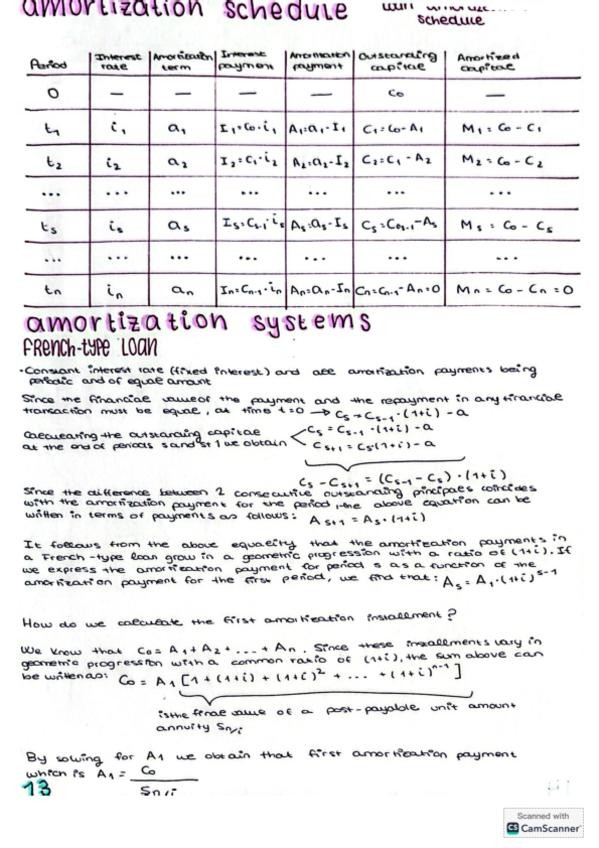 amortization schedule
schedule
Period Interest rate Amortization term Interest payment Amortization payment Outstanding capital Amortized capital
0 — — — — C₀ —
t₁ i₁ a₁ I₁=C₀·i₁ A₁=a₁-I₁ C₁=C₀-A₁ M₁=C₀-C₁
t₂ i₂ a₂ I₂=C₁·i₂ A₂=a₂-I₂ C₂=C₁-A₂ M₂=C₀-C₂
... ... ... ... ... ... ...
ts is as Is=Cs-1·is As=as-Is Cs=Cs-1-As Ms=C₀-Cs
... ... ... ... ... ... ...
tn in an In=Cn-1·in An=an-In Cn=Cn-1-An=0 Mn=C₀-Cn=0
amortization systems
French-type loan
·Constant interest rate (fixed interest) and all amortization payments being
periodic and of equal amount
Since the financial value of the payment and the repayment in any financial
transaction must be equal, at time t=0 → Cs=Cs-1·(1+i)-a
Calculating the outstanding capital
at the end of periods s and s+1 we obtain
Cs=Cs-1·(1+i)-a
Cs+1=Cs(1+i)-a
Cs-Cs+1=(Cs-1-Cs)·(1+i)
Since the difference between 2 consecutive outstanding principals coincides
with the amortization payment for the period, the above equation can be
written in terms of payments as follows: As+1=As·(1+i)
It follows from the above equality that the amortization payments in
a French-type loan grow in a geometric progression with a ratio of (1+i). If
we express the amortization payment for period s as a function of the
amortization payment for the first period, we find that: As=A₁·(1+i)^s-1
How do we calculate the first amortization installment?
We know that C₀=A₁+A₂+...+An. Since these installments vary in
geometric progression with a common ratio of (1+i), the sum above can
be written as: C₀=A₁[1+(1+i)+(1+i)²+...+(1+i)^n-1]
is the final value of a post-payable unit amount
annuity Sn/i
By solving for A₁ we obtain that first amortization payment
which is A₁= C₀
Sn/i
13
Scanned with
CS CamScanner